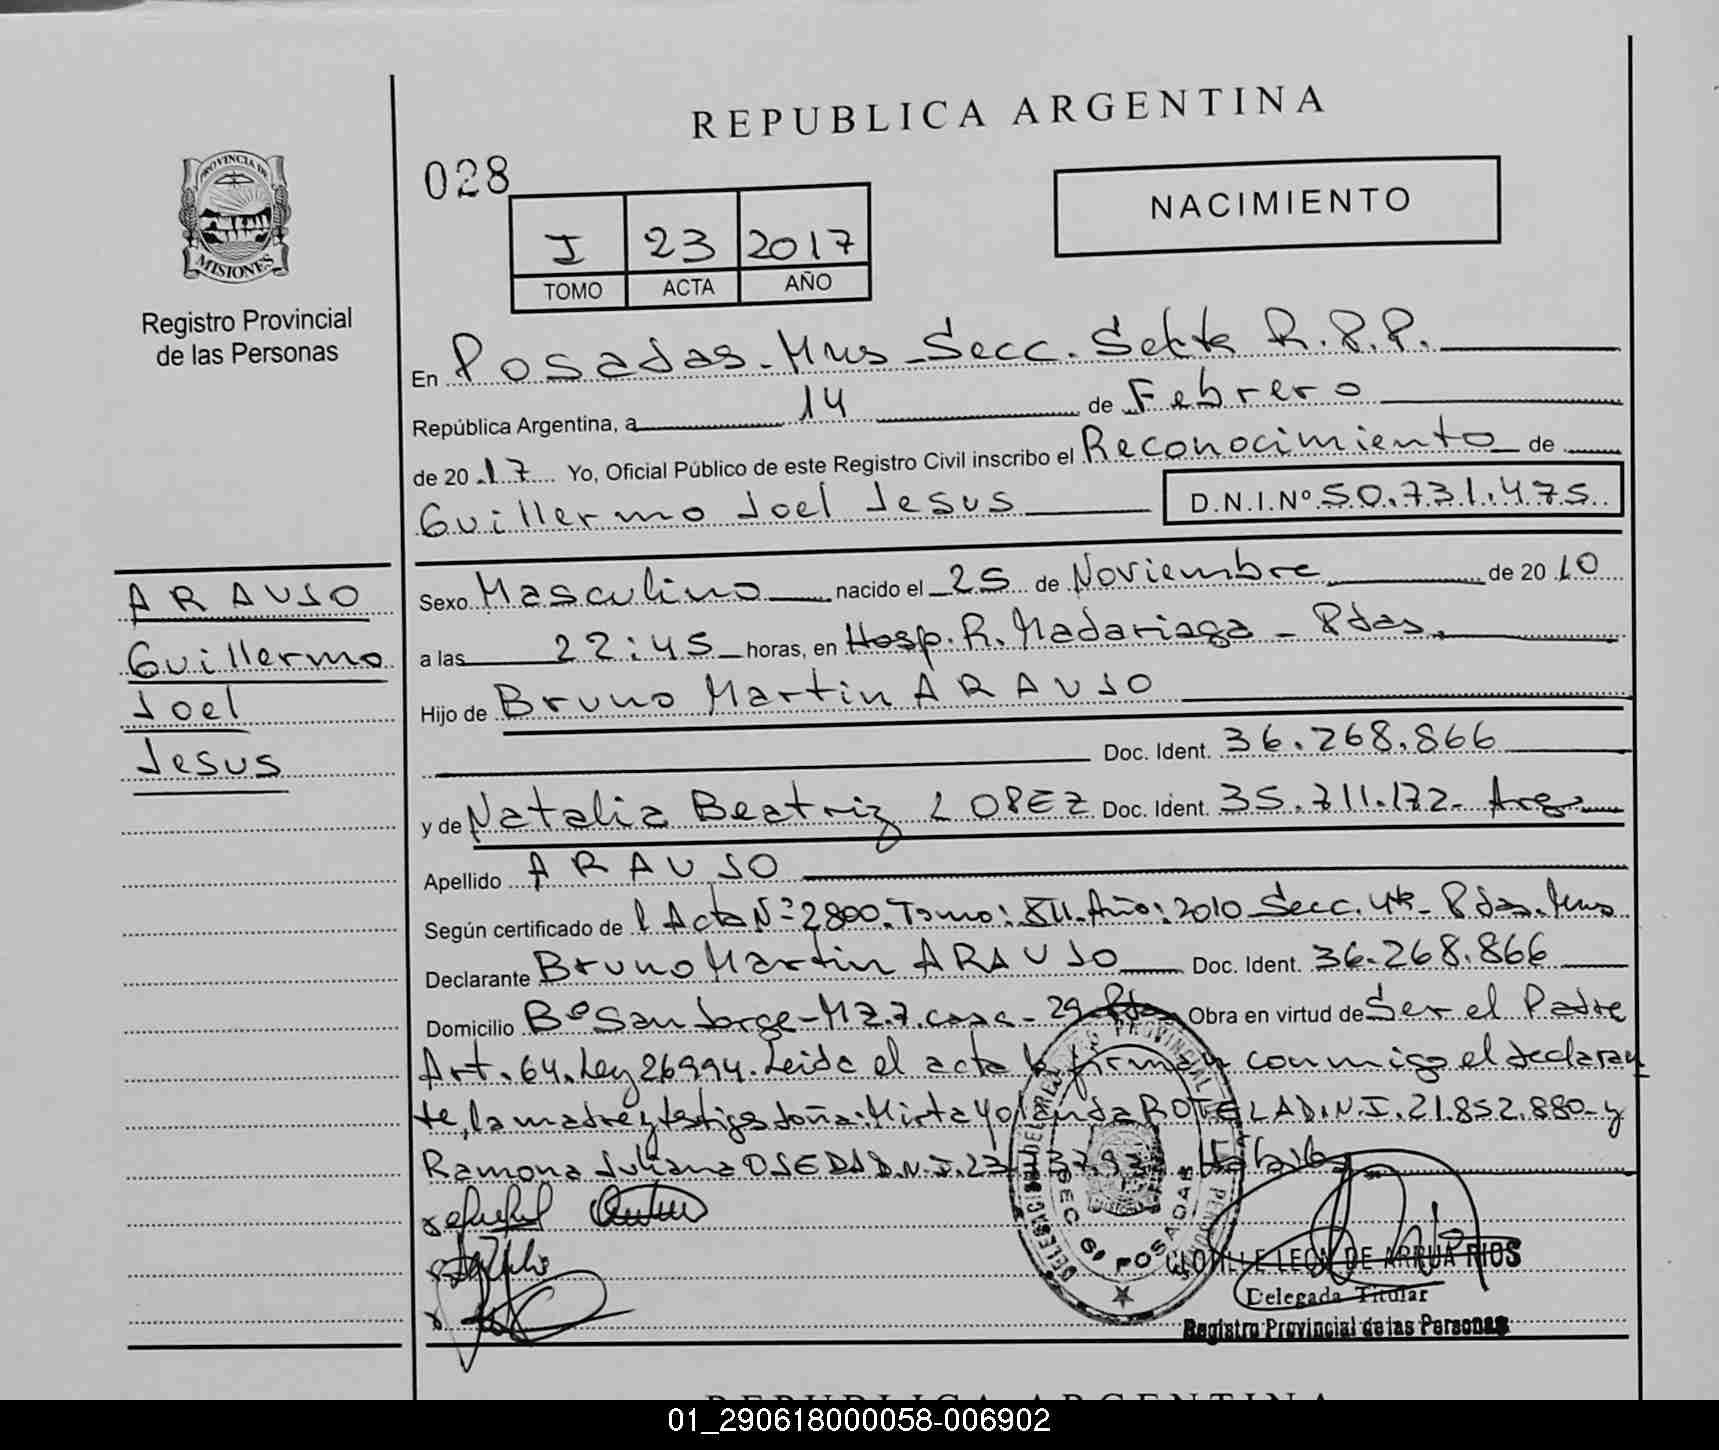 REPUBLICA ARGENTINA
PROVINCIA DE
MISIONES
Registro Provincial
de las Personas
028
NACIMIENTO
I 23 2017
TOMO ACTA AÑO
En Posadas - Mns - Secc. Sexta R.P.P.
República Argentina, a 14 de Febrero
de 2017 Yo, Oficial Público de este Registro Civil inscribo el Reconocimiento de
Guillermo Joel Jesus D.N.I.Nº 50.731.475
ARAUJO
Guillermo
Joel
Jesus
Sexo Masculino nacido el 25 de Noviembre de 2010
a las 22:45 horas, en Hosp. R. Madariaga - Pdas.
Hijo de Bruno Martin ARAUJO
Doc. Ident. 36.268.866
y de Natalia Beatriz LOPEZ Doc. Ident. 35.711.172 - Arg.
Apellido ARAUJO
Según certificado de l Acta Nº 2800. Tomo: Año: 2010 Secc. 4ta - Pdas. Mns
Declarante Bruno Martin ARAUJO Doc. Ident. 36.268.866
Domicilio Bº San Jorge - MZ.7. casa - 29 Pdas Obra en virtud de Ser el Padre
Art. 64. Ley 26994. Leida el acta la firman conmigo el declaran
te, la madre y testigos doña: Mirta Yolanda BOTELA D.N.I. 21.852.880 - y
Ramona Juliana OJEDA D.N.I.
DELEGACION DEL REGISTRO PROVINCIAL DE LAS PERSONAS
SEC. 6ª POSADAS
CLOTILDE LEON DE ARRUA RIOS
Delegada Titular
Registro Provincial de las Personas
REPUBLICA ARGENTINA
01_290618000058-006902